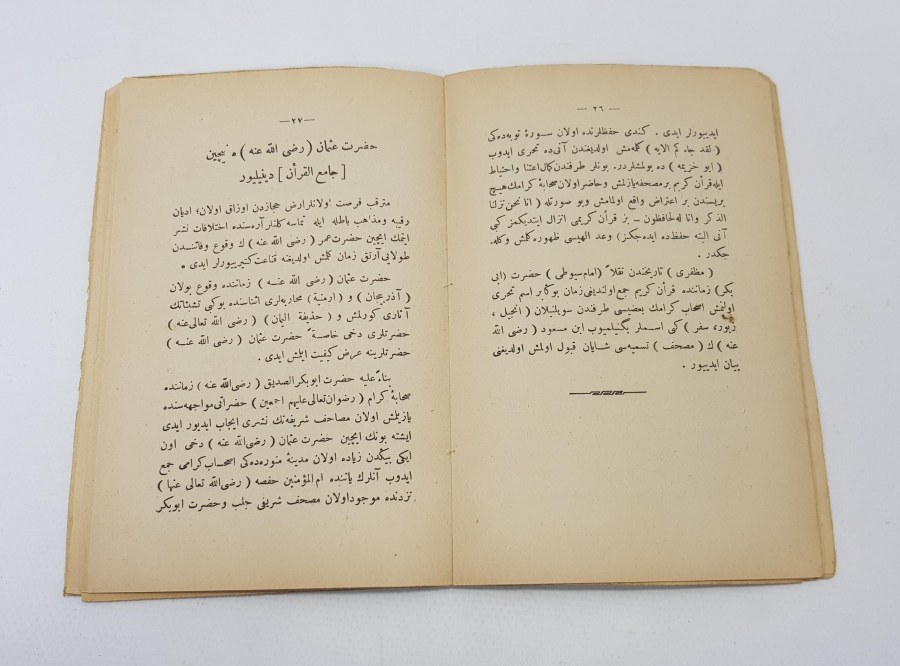 — ٢٦ —
ایدیورلر ایدی . کندی حفظلرنده اولان سورۀ توبه‌ده‌کی
( لقد جاءکم الایه ) کله‌مش اولدیغندن آنی‌ده تحری ایدوب
( ابو خزیمه ) ده بولمشلردر. بونلر طرفندن کمال اعتنا و احتیاط
ایله قرآن کریم بر مصحفه یازلمش و حاضر اولان صحابۀ کرامك هیچ
بریسندن بر اعتراض واقع اولمامش وبو صورتله ( انا نحن نزلنا
الذکر وانا له لحافظون ـ بز قرآن کریمی انزال ایتدیکمز کبی
آنی البته حفظده ایده‌جکز ) وعد الهیسی ظهوره کلش وکله‌
جکدر .
( مظفری ) تاریخندن نقلاً ( امام سیوطی ) حضرت ( ابی
بکر ) زماننده قرآن کریم جمع اولندیغی زمان بوکا بر اسم تحری
اولنمش اصحاب کرامك بعضیسی طرفندن سویلنیلان ( انجیل ،
زبور، سفر ) کبی اسملر بگنیلمیوب ابن مسعود ( رضی الله
عنه ) ك ( مصحف ) تسمیه‌سی شایان قبول اولمش اولدیغنی
بیان ایدییور .
—٢٧—
حضرت عثمان ( رضی الله عنه ) ه نیچین
[ جامع القرأن ] دینیلیور
مترقب فرصت اولانلر ارض حجازدن اوزاق اولان؛ ادیان
رقیبه ومذاهب باطله ایله تماسه کلنلر آره‌سنده اختلافات نشر
ایتمك ایچین حضرت عمر ( رضی الله عنه ) ك وقوع وفاتندن
طولایی آرتق زمان کلش اولدیغنه قناعت کتیرییورلر ایدی .
حضرت عثمان ( رضی الله عنـه ) زماننده وقوع بولان
( آذربیجان ) و ( ارمنیة ) محاربه‌لری اثناسنده بوکبی تشبثاتك
آثاری کورلمش و ( حذیفة الیمان ) ( رضی الله تعالی عنه )
حضرتلری دخی خاصةً حضرت عثمان ( رضی الله عنـه )
حضرتلرینه عرض کیفیت ایلش ایدی .
بناءً علیه حضرت ابوبکر الصدیق ( رضی الله عنه ) زماننده
صحابۀ کرام ( رضوان تعالی علیهم اجمعین ) حضراتی مواجهه‌سنده
یازیلش اولان مصاحف شریفه‌نك نشری ایجاب ایدیور ایدی
ایشته بونك ایچین حضرت عثمان ( رضی الله عنه ) دخی اون
ایکی بیگدن زیاده اولان مدینۀ منوره‌ده‌کی اصحـاب کرامی جمع
ایدوب آنلرك یاننده ام المؤمنین حفصه ( رضی الله تعالی عنها )
نزدنده موجود اولان مصحف شریفی جلب وحضرت ابوبکر